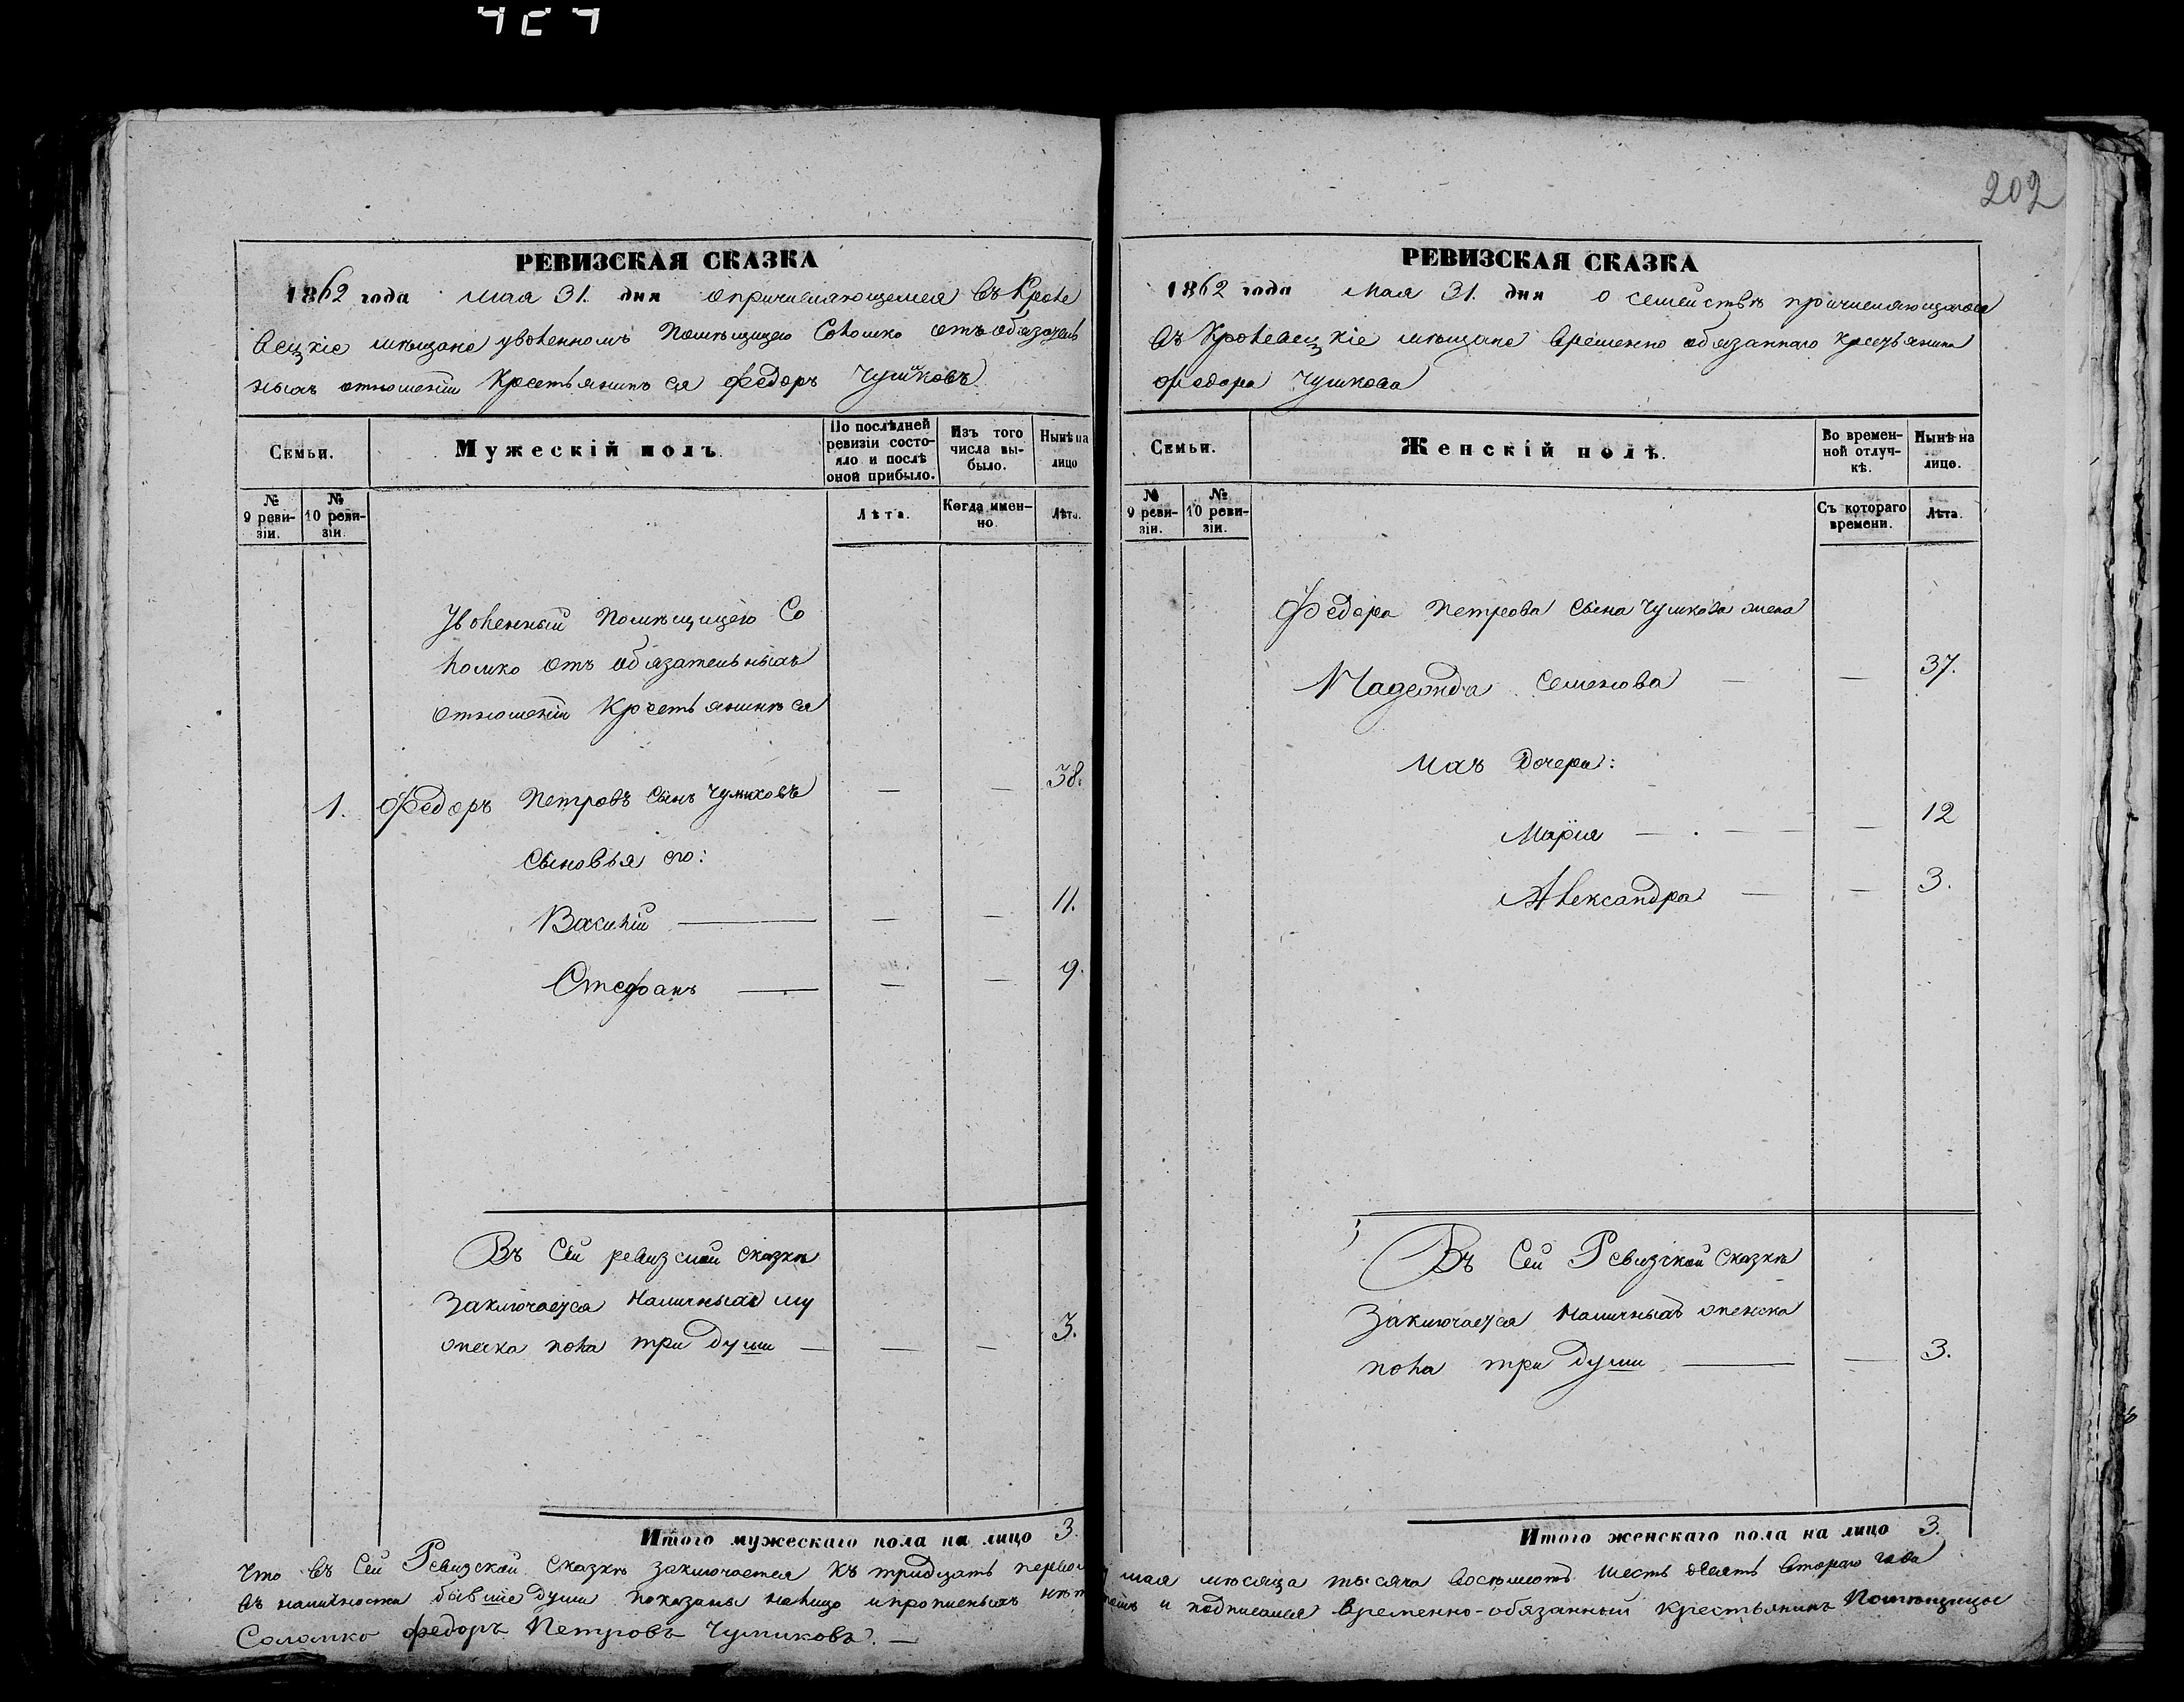 202
РЕВИЗСКАЯ СКАЗКА
1862 года Мая 31. дня о причисляющемся въ Кроле
вецкіе мѣщане уволенномъ Помѣщицею Соломко отъ обязатель
ныхъ отношеній Крестьянинѣ ея Федорѣ
Семьи.
Мужескій полъ
По послѣдней ревизіи состояло и послѣ оной прибыло.
Изъ того числа выбыло.
Нынѣ на лицо
№ 9 ревизіи.
№ 10 ревизіи.
Лѣта.
Когда именно.
Лѣта.
Уволенный Помѣщицею Со
ломко отъ обязательныхъ
отношеній Крестьянинъ ея
1. Федоръ Петровъ сынъ — — 38.
Сыновья его:
Василій — — — 11.
Стефанъ — — — 9.
Въ сей ревизской сказкѣ
заключается наличныхъ му
жеска пола три души — — — 3.
Итого мужескаго пола на лицо 3.
РЕВИЗСКАЯ СКАЗКА
1862 года Мая 31. дня о семействѣ причисляющагося
въ Кролевецкіе мѣщане временно обязаннаго крестьянина
Федора Чумкова
Семьи.
Женскій полъ.
Во временной отлучкѣ.
Нынѣ на лицо.
№ 9 ревизіи.
№ 10 ревизіи.
Съ котораго времени.
Лѣта.
Федора Петрова сына Чумкова жена
Надежда Семенова — — 37.
Ихъ дочери:
Марія — — — — 12
Александра — — 3.
Въ сей Ревизской сказкѣ
заключается наличныхъ женска
пола три души — — 3.
Итого женскаго пола на лицо 3.
Что въ сей Ревизской сказкѣ заключается къ тридцать перво мая мѣсяца тысяча восемьсотъ шестьдесятъ втораго года
въ наличности бывшіе души показаны на лицо и прописныхъ нѣт и подписался временно-обязанный крестьянинъ Помѣщицы
Соломко Федоръ Петровъ